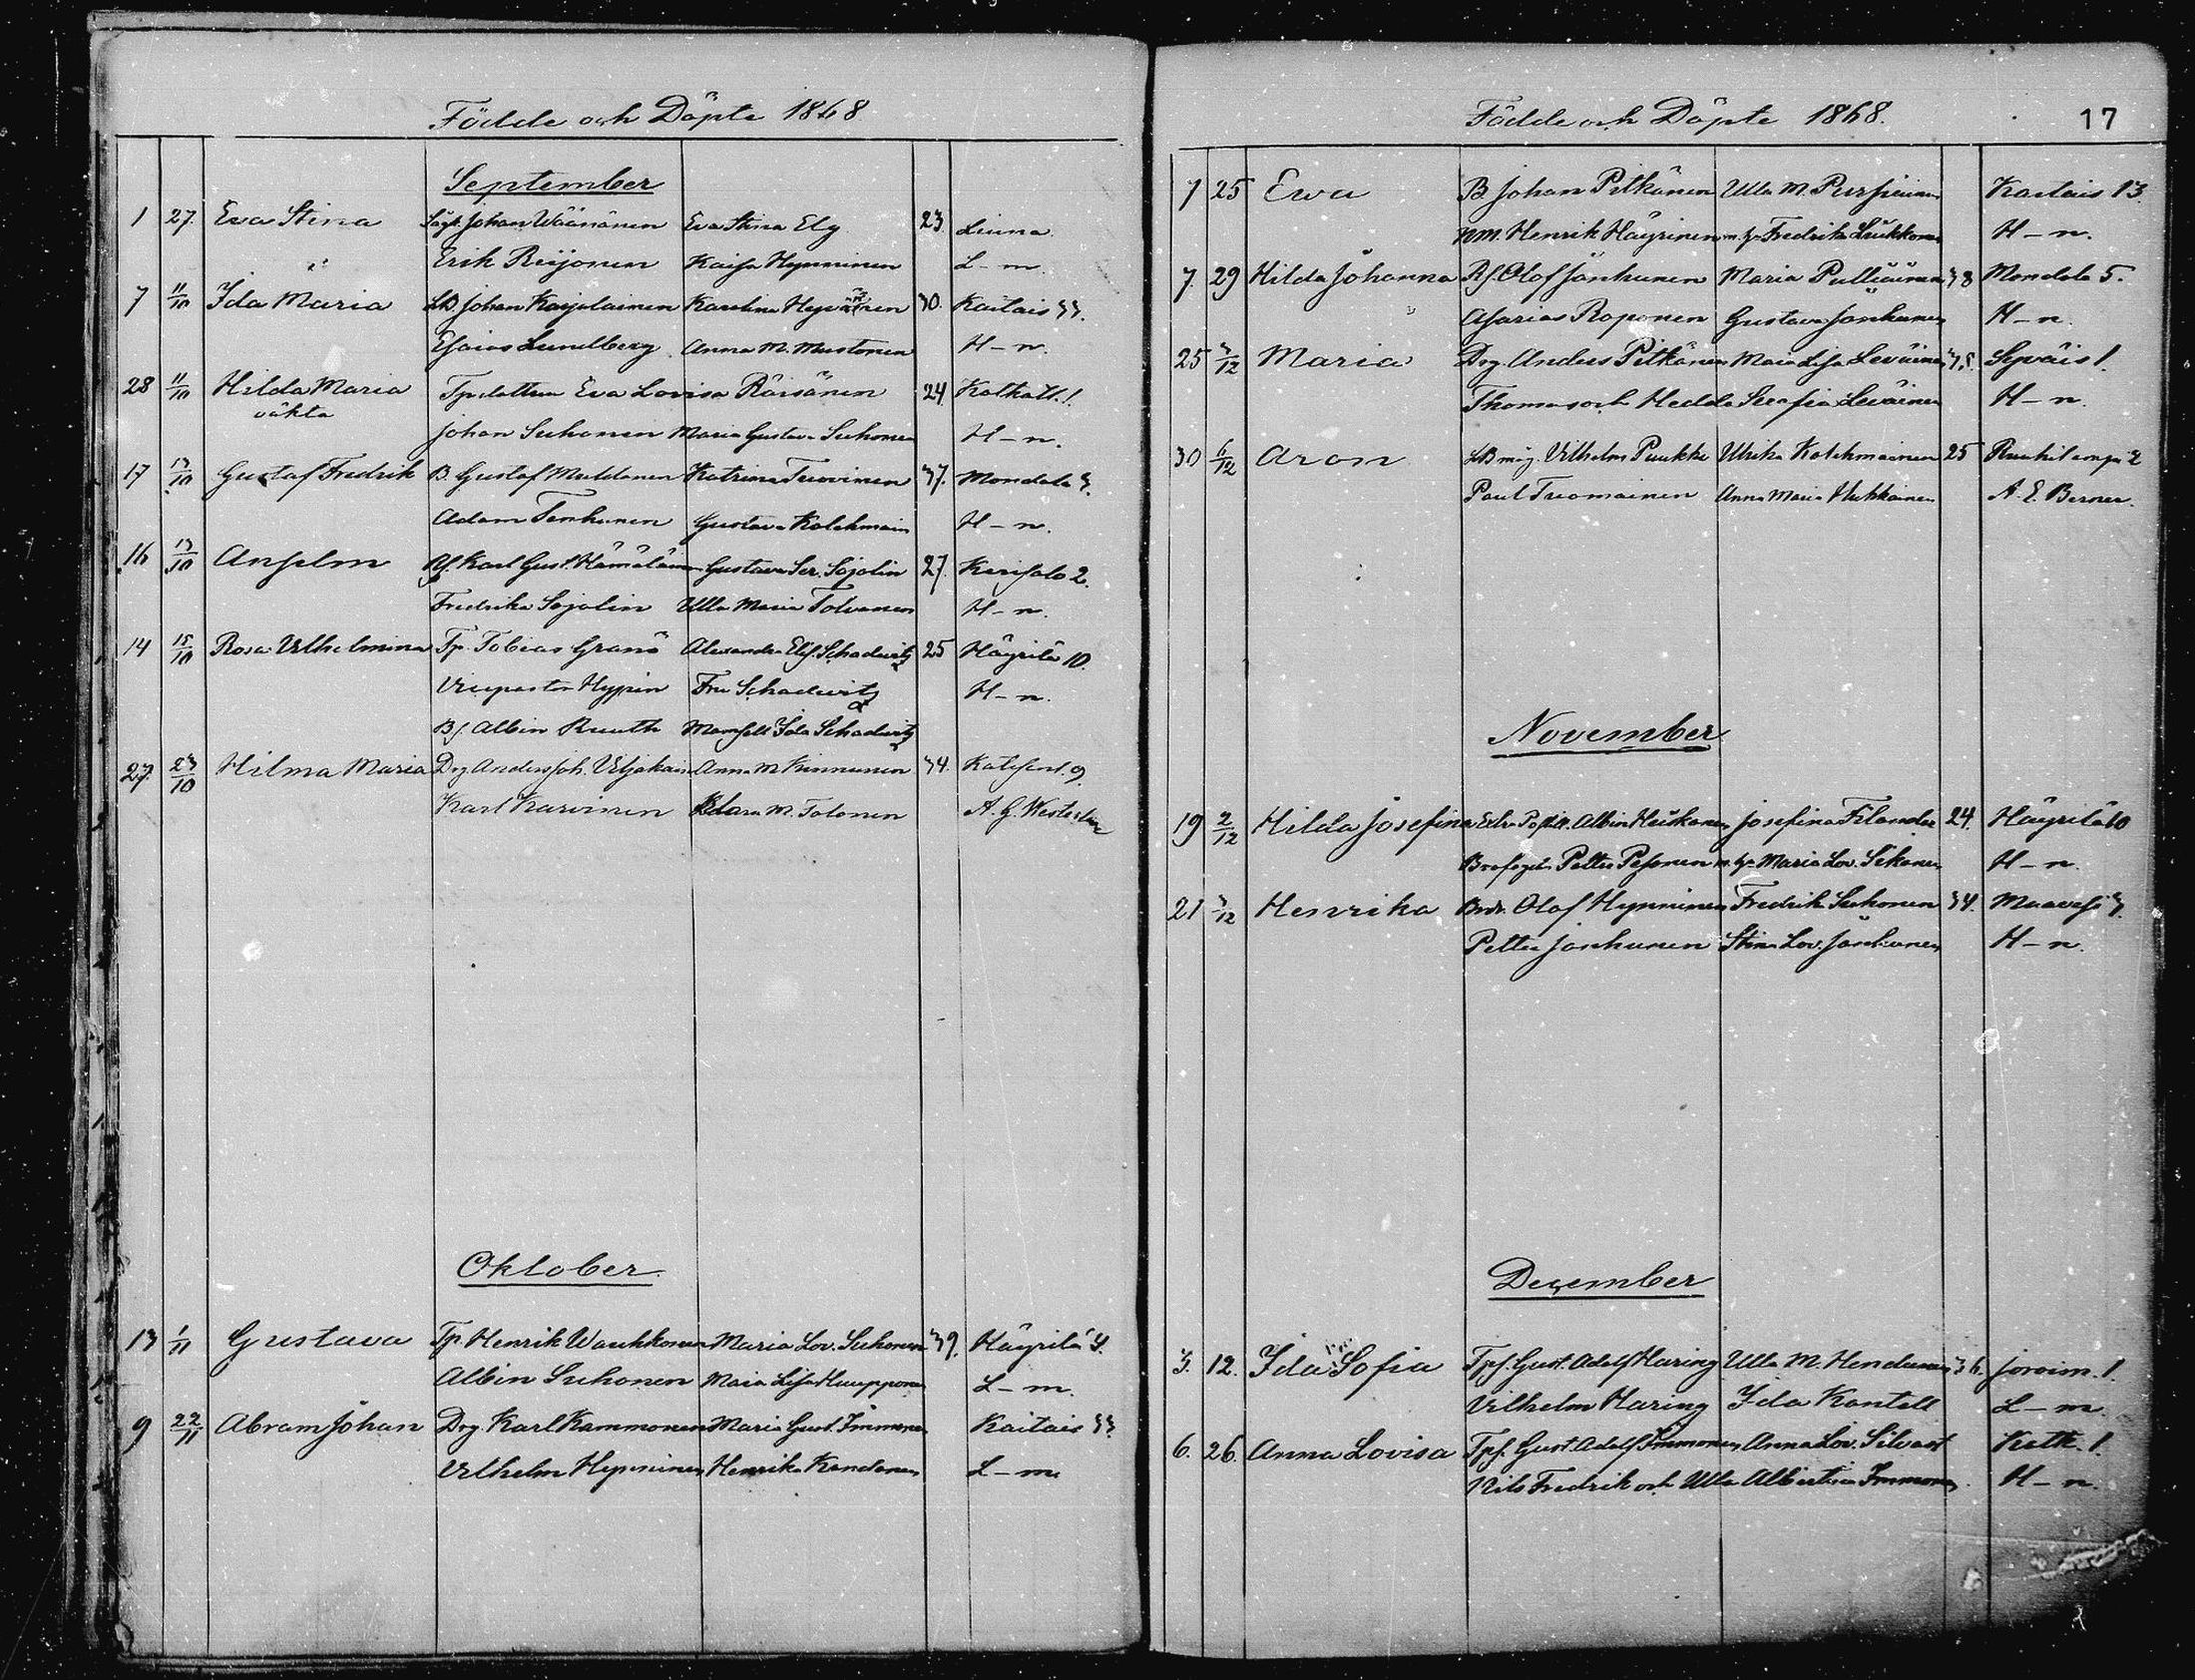 Födde och Döpte 1868
September
1 27. Eva Stina Johan Wäänänen Eva Stina Ely 23 Liuna
Erik Reijonen Kaisa Hynninen L-m.
7 11/10 Ida Maria LB. Johan Karjalainen Karolina 30. Kaitais 33.
Esaias Lundberg Anna M. Mustonen H-n.
28 11/10 Hilda Maria Eva Lovisa Räisänen 24. 1.
oäkta
Johan Suhonen Maria Gustava Suhonen H-n.
17 13/10 Gustaf Fredrik B. Gustaf Muldonen Katrina Tuovinen 37. Mondola 3.
Adam Tenhunen Gustava Kolehmain H-n.
16 13/10 Anselm Karl Gust. Hämäläinen Gustava Ser. Sojolin 27. 2.
Fredrika Sojolin Ulla Maria Tolvanen H-n.
14 15/10 Rosa Vilhelmina Tp. Tobias Granö Alexandra Elis. Schadewitz 25 Häyrilä 10.
Vicepastor Hypén Fru Schadewitz H-n.
Albin Ruuth Mamsell Ida Schadewitz
27. 23/10 Hilma Maria Drg Anders Joh. Anna M. Kinnunen 34. 9
Karl Karvinen Klara M. Tolonen A. G.
Oktober.
13 1/11 Gustava Tp. Henrik Wauhkonen Maria Lov. Suhonen 39. Häyrilä 4.
Albin Suhonen Maria Lisa Huupponen L-m.
9 22/11 Abram Johan Drg. Karl Kammonen Maria Gust. Immonen Kaitais 33.
Vilhelm Hynninen Henrika L-m
Födde och Döpte 1868. 17
7 25 Ewa B. Johan Pitkänen Ulla M. Kaitais 13.
Henrik Häyrinen m. h. Fredrika Liukkonen H-n.
7. 29 Hilda Johanna Olof Jänhunen Maria Pulliainen 38 Mondola 5.
Asarias Roponen Gustava Jänhunen H-n.
25 3/12 Maria Drg. Anders Pitkänen Maria Lisa Leväinen Syväis 1.
Thomas och Hedda Serafia Leväinen H-n.
30 6/12 Aron Vilhelm Puukko Ulrika Kolehmainen 25 2
Paul Tuomainen Anna Maria Hukkainen A. E. Berner.
November
19 2/12 Hilda Josefina Albin Heiskanen Josefina Filander 24. Häyrilä 10
Petter Pesonen m. h. Maria Lov. H-n.
21 3/12 Henrika Olof Hynninen Fredrika Suhonen 34. Maavesi 7.
Petter Janhunen Stina Lov. Jänhunen H-n.
December
3. 12. Ida Sofia Gust. Adolf Haring Ulla M. 36. Joroim. 1.
Vilhelm Haring Ida Kantell L-m.
6. 26. Anna Lovisa Gust. Adolf Immonen Anna Lov. Silvast 1.
Nils Fredrik och Ulla Albertina Immonen. H-n.